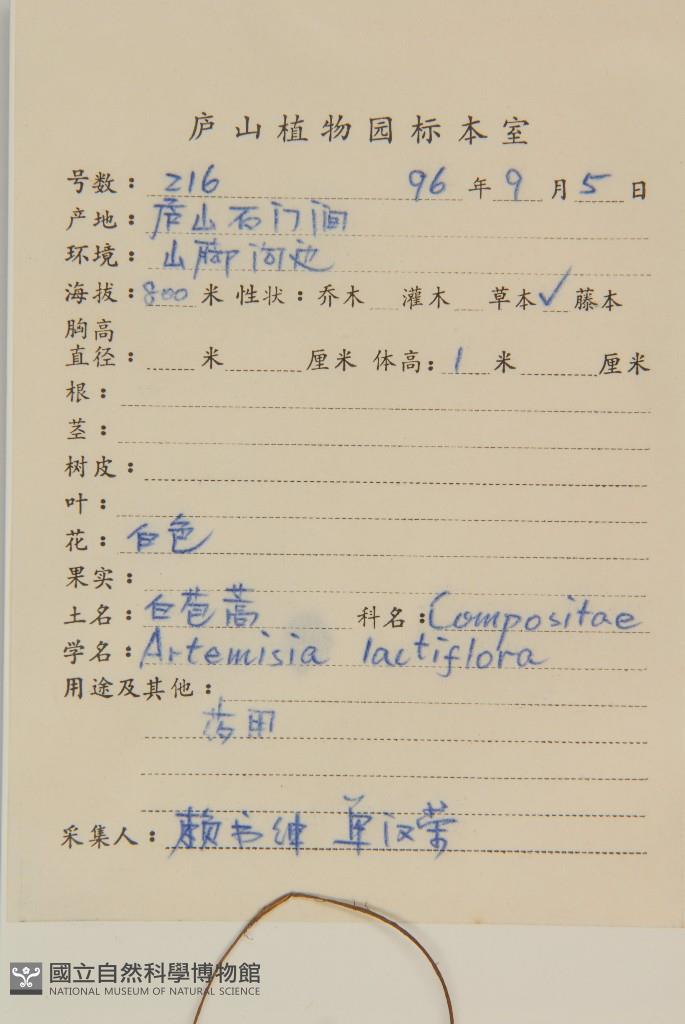 庐山植物园标本室
号数：216 96年9月5日
产地：庐山石门涧
环境：山脚河边
海拔：800米 性状：乔木 灌木 草本✓ 藤本
胸高
直径： 米 厘米 体高：1米 厘米
根：
茎：
树皮：
叶：
花：白色
果实：
土名：白苞蒿 科名：Compositae
学名：Artemisia lactiflora
用途及其他：
药用
采集人：赖书绅 单汉荣
國立自然科學博物館
NATIONAL MUSEUM OF NATURAL SCIENCE